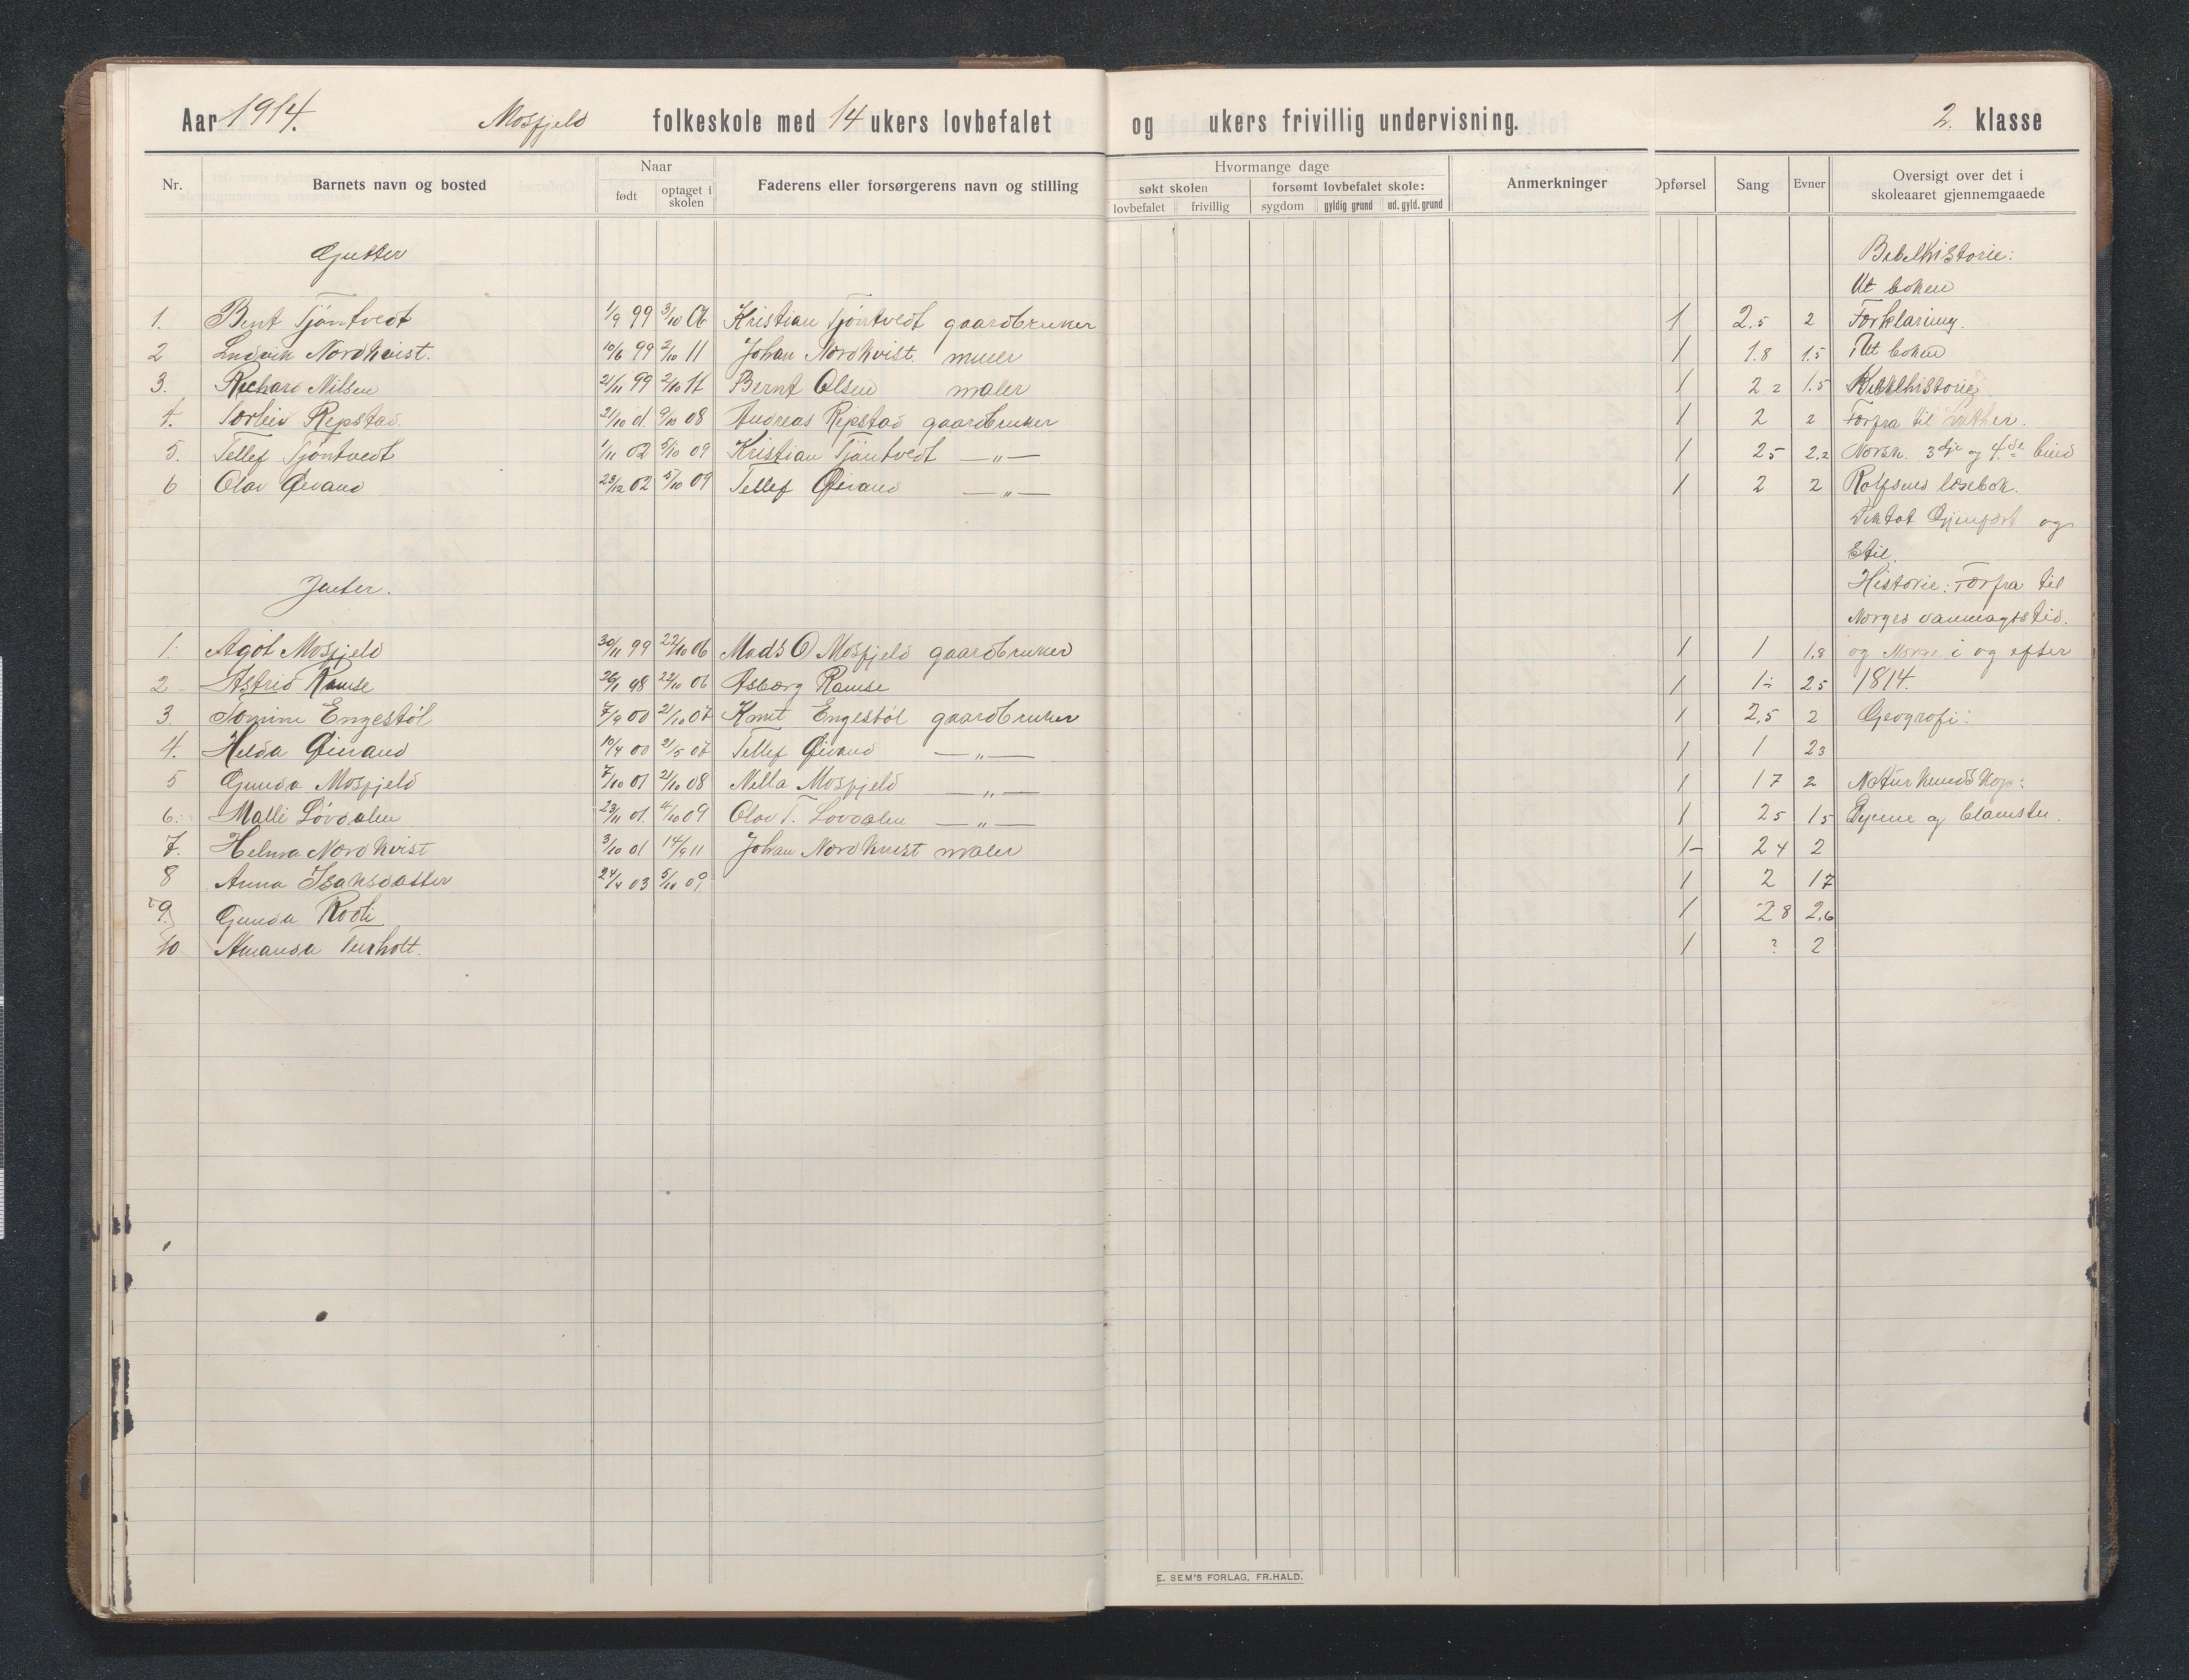 Aar 1914. Mosfjeld folkeskole med 14 ukers lovbefalet og ukers frivillig undervisning. 2. klasse
Nr. Barnets navn og bosted Naar født optaget i skolen Faderens eller forsørgerens navn og stilling Hvormange dage søkt skolen lovbefalet frivillig forsømt lovbefalet skole: sygdom gyldig grund ud. gyld. grund Anmerkninger Opførsel Sang Evner Oversigt over det i skoleaaret gjennemgaaede
Gutter Bibelhistorie:
Ut boken
1. Bent Tjöntvedt 1/9 99 3/10 06 Kristian Tjöntvedt gaardbruker 1 2,5 2 Forklaring.
2 Ludvik Nordkvist. 10/6 99 2/10 11 Johan Nordkvist. murer 1 1.8 1.5 Ut boken
3. Richard Nilsen 21/11 99 2/10 11 Bernt Olsen maler 1 2 2 1.5 Kirkehistorie
4. Torleiv Repstad. 21/10 01. 9/10 08 Andreas Repstad gaardbruker 1 2 2 Forfra til Luther.
5. Tellef Tjöntvedt 1/11 02 5/10 09 Kristian Tjöntvedt —„— 1 2 5 2.2 Norsk. 3dje og 4.de bind
6 Olav Øivand 23/12 02 5/10 09 Tellef Øivand —„— 1 2 2 Rolfsens læsebok.
Diktat Gjenfort og
Stil
Historie: Forfra til
Jenter. Norges vanmagtstid.
1. Agöt Mosfjeld 30/11 99 22/10 06 Mads O Mosfjeld gaardbruker 1 1 1,8 og Norge i og efter
2 Astrid Ramse 26/1 98 22/10 06 Asbørg Ramse 1 1- 2 5 1814.
3. Tomine Engestöl 7/9 00 21/10 07 Knut Engestöl gaardbruker 1 2,5 2 Geografi:
4. Helda Øivand 10/4 00 21/5 07 Tellef Øivand —„— 1 1 2 3
5 Gunda Mosfjeld 7/10 01 21/10 08 Nella Mosfjeld —„— 1 1 7 2 Naturkundskap:
6. Malli Lövdalen 23/11 01. 4/10 09 Olav T. Lovdalen —„— 1 2 5 1 5 Dyrene og blomster.
7. Helma Nordkvist 3/10 01 14/9 11 Johan Nordkvist maler 1- 2 4 2
8 Anna Isaksdatter 24/4 03 5/10 09. 1 2 1 7
9. Gunda Rodli 1 2 8 2,6
10 Amanda 1 ? 2
E. SEM'S FORLAG, FR.HALD.